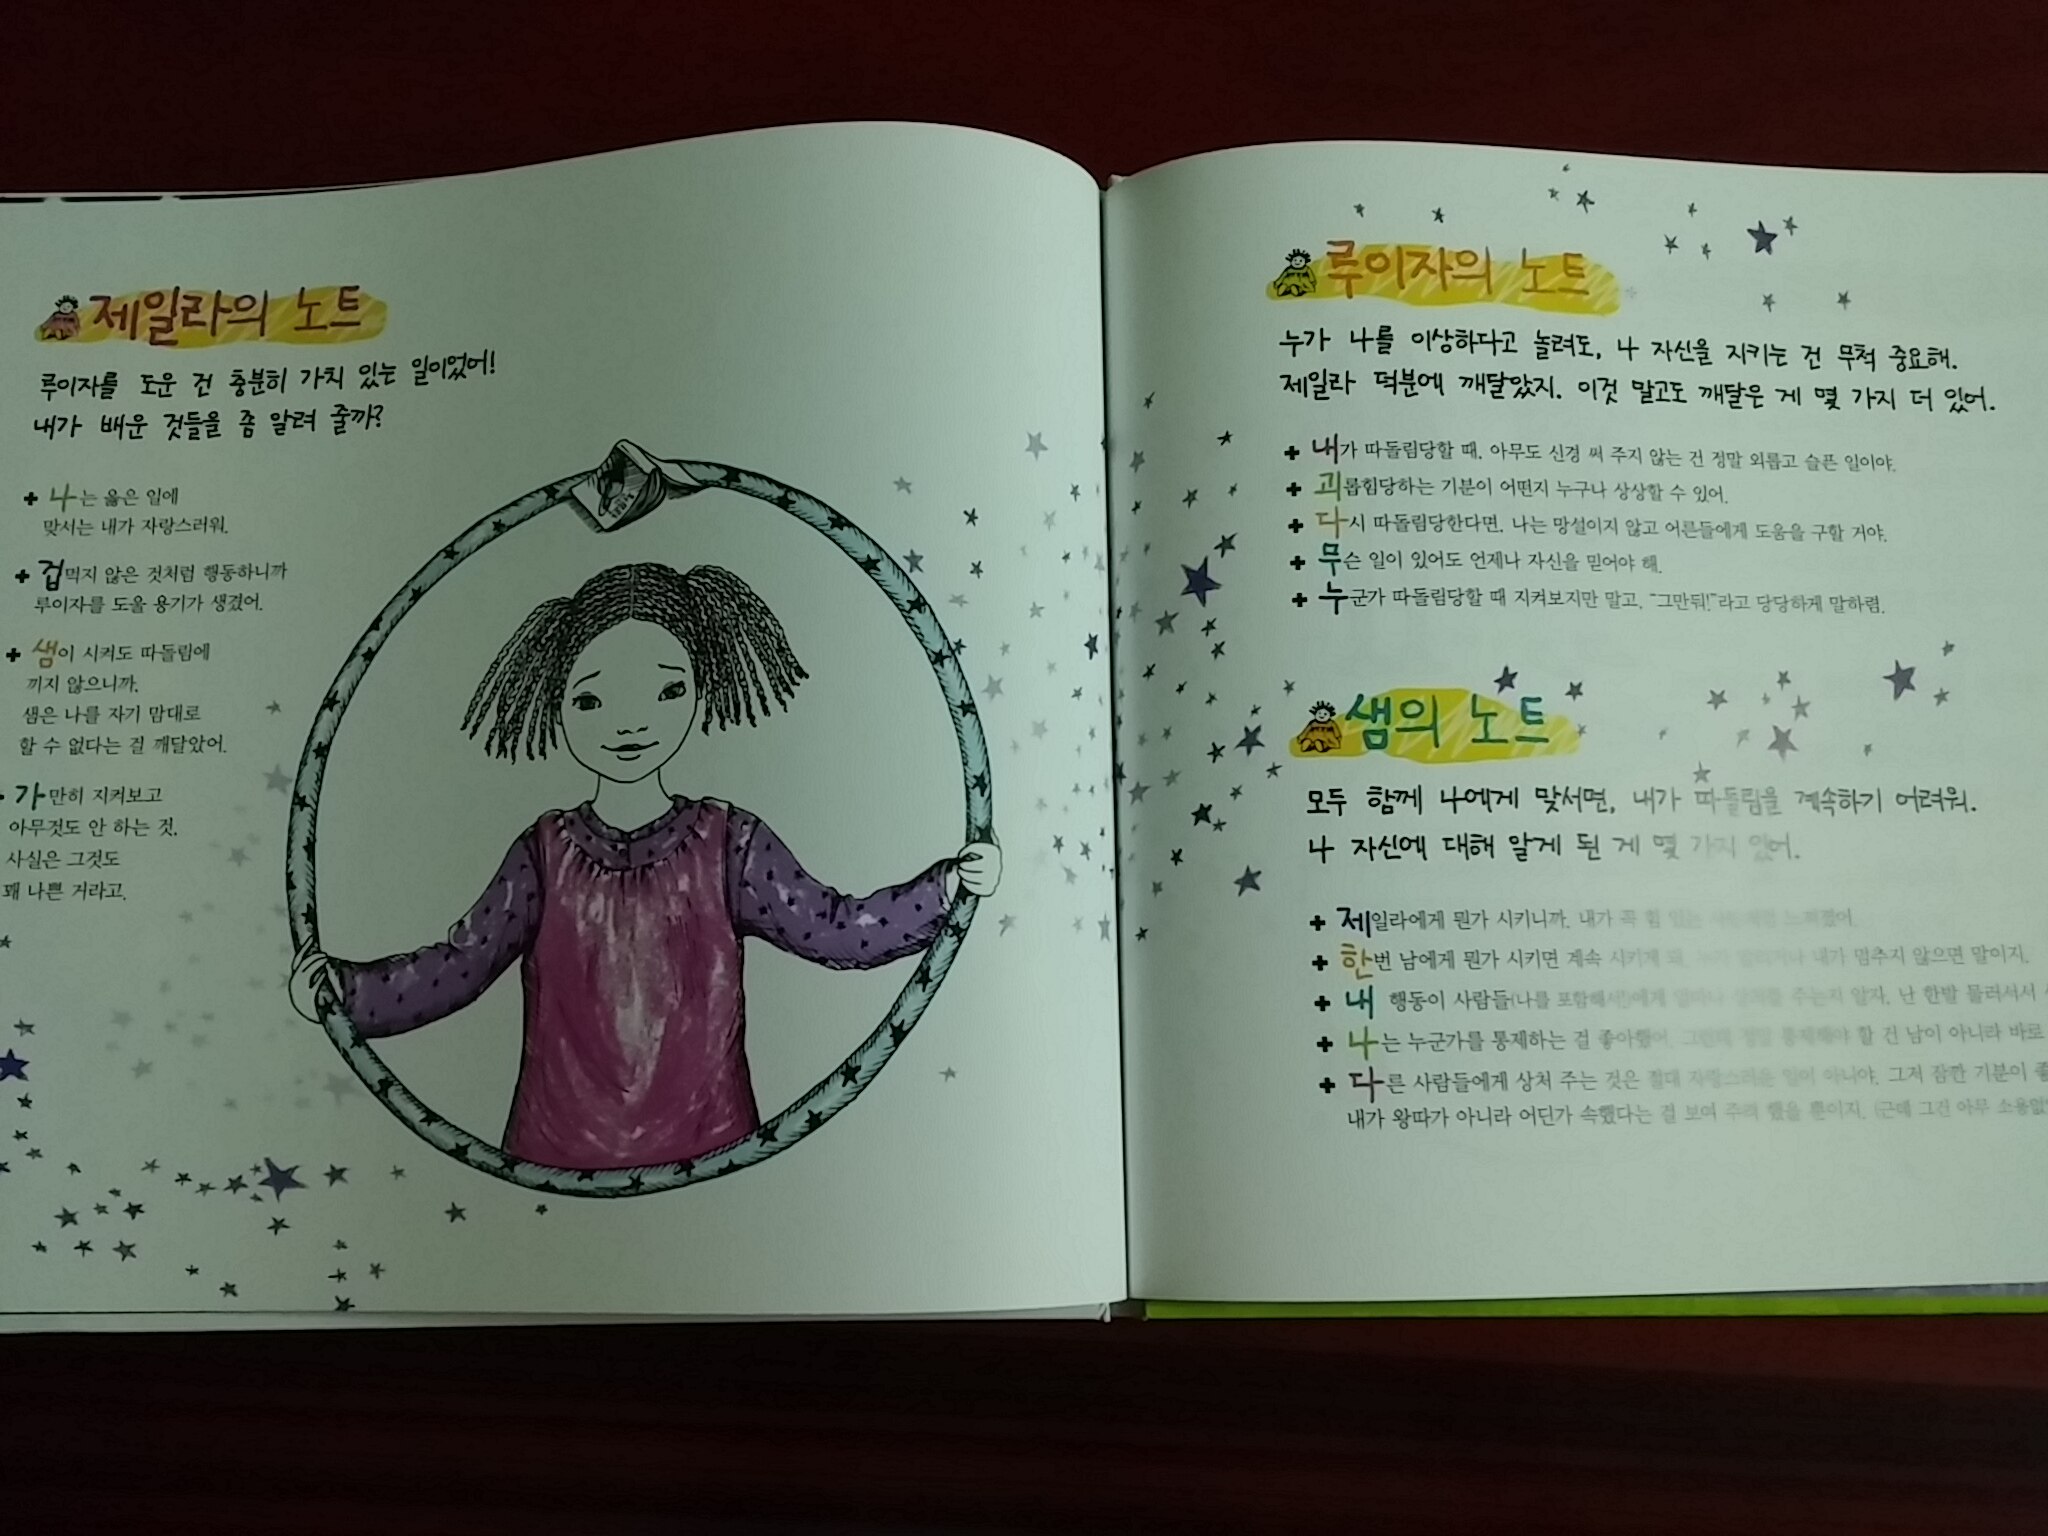 제일라의 노트
루이자를 도운 건 충분히 가치 있는 일이었어!
내가 배운 것들을 좀 알려 줄까?
+ 나는 옳은 일에
맞서는 내가 자랑스러워.
+ 겁먹지 않은 것처럼 행동하니까
루이자를 도울 용기가 생겼어.
+ 샘이 시켜도 따돌림에
끼지 않으니까.
샘은 나를 자기 맘대로
할 수 없다는 걸 깨달았어.
+ 가만히 지켜보고
아무것도 안 하는 것.
사실은 그것도
꽤 나쁜 거라고.
루이자의 노트
누가 나를 이상하다고 놀려도, 나 자신을 지키는 건 무척 중요해.
제일라 덕분에 깨달았지. 이것 말고도 깨달은 게 몇 가지 더 있어.
+ 내가 따돌림당할 때, 아무도 신경 써 주지 않는 건 정말 외롭고 슬픈 일이야.
+ 괴롭힘당하는 기분이 어떤지 누구나 상상할 수 있어.
+ 다시 따돌림당한다면, 나는 망설이지 않고 어른들에게 도움을 구할 거야.
+ 무슨 일이 있어도 언제나 자신을 믿어야 해.
+ 누군가 따돌림당할 때 지켜보지만 말고, "그만둬!"라고 당당하게 말하렴.
샘의 노트
모두 함께 나에게 맞서면, 내가 따돌림을 계속하기 어려워.
나 자신에 대해 알게 된 게 몇 가지 있어.
+ 제일라에게 뭔가 시키니까, 내가 꼭 힘
+ 한번 남에게 뭔가 시키면 계속 시키게 돼. 내가 멈추지 않으면 말이지.
+ 내 행동이 사람들(나를 포함해서)에게 주는지 알자. 난 한발 물러서서
+ 나는 누군가를 통제하는 걸 좋아했어. 그런데 정말 통제해야 할 건 남이 아니라 바로
+ 다른 사람들에게 상처 주는 것은 절대 자랑스러운 일이 아니야. 그저 잠깐 기분이
내가 왕따가 아니라 어딘가 속했다는 걸 보여 주려 했을 뿐이지. (근데 그건 아무